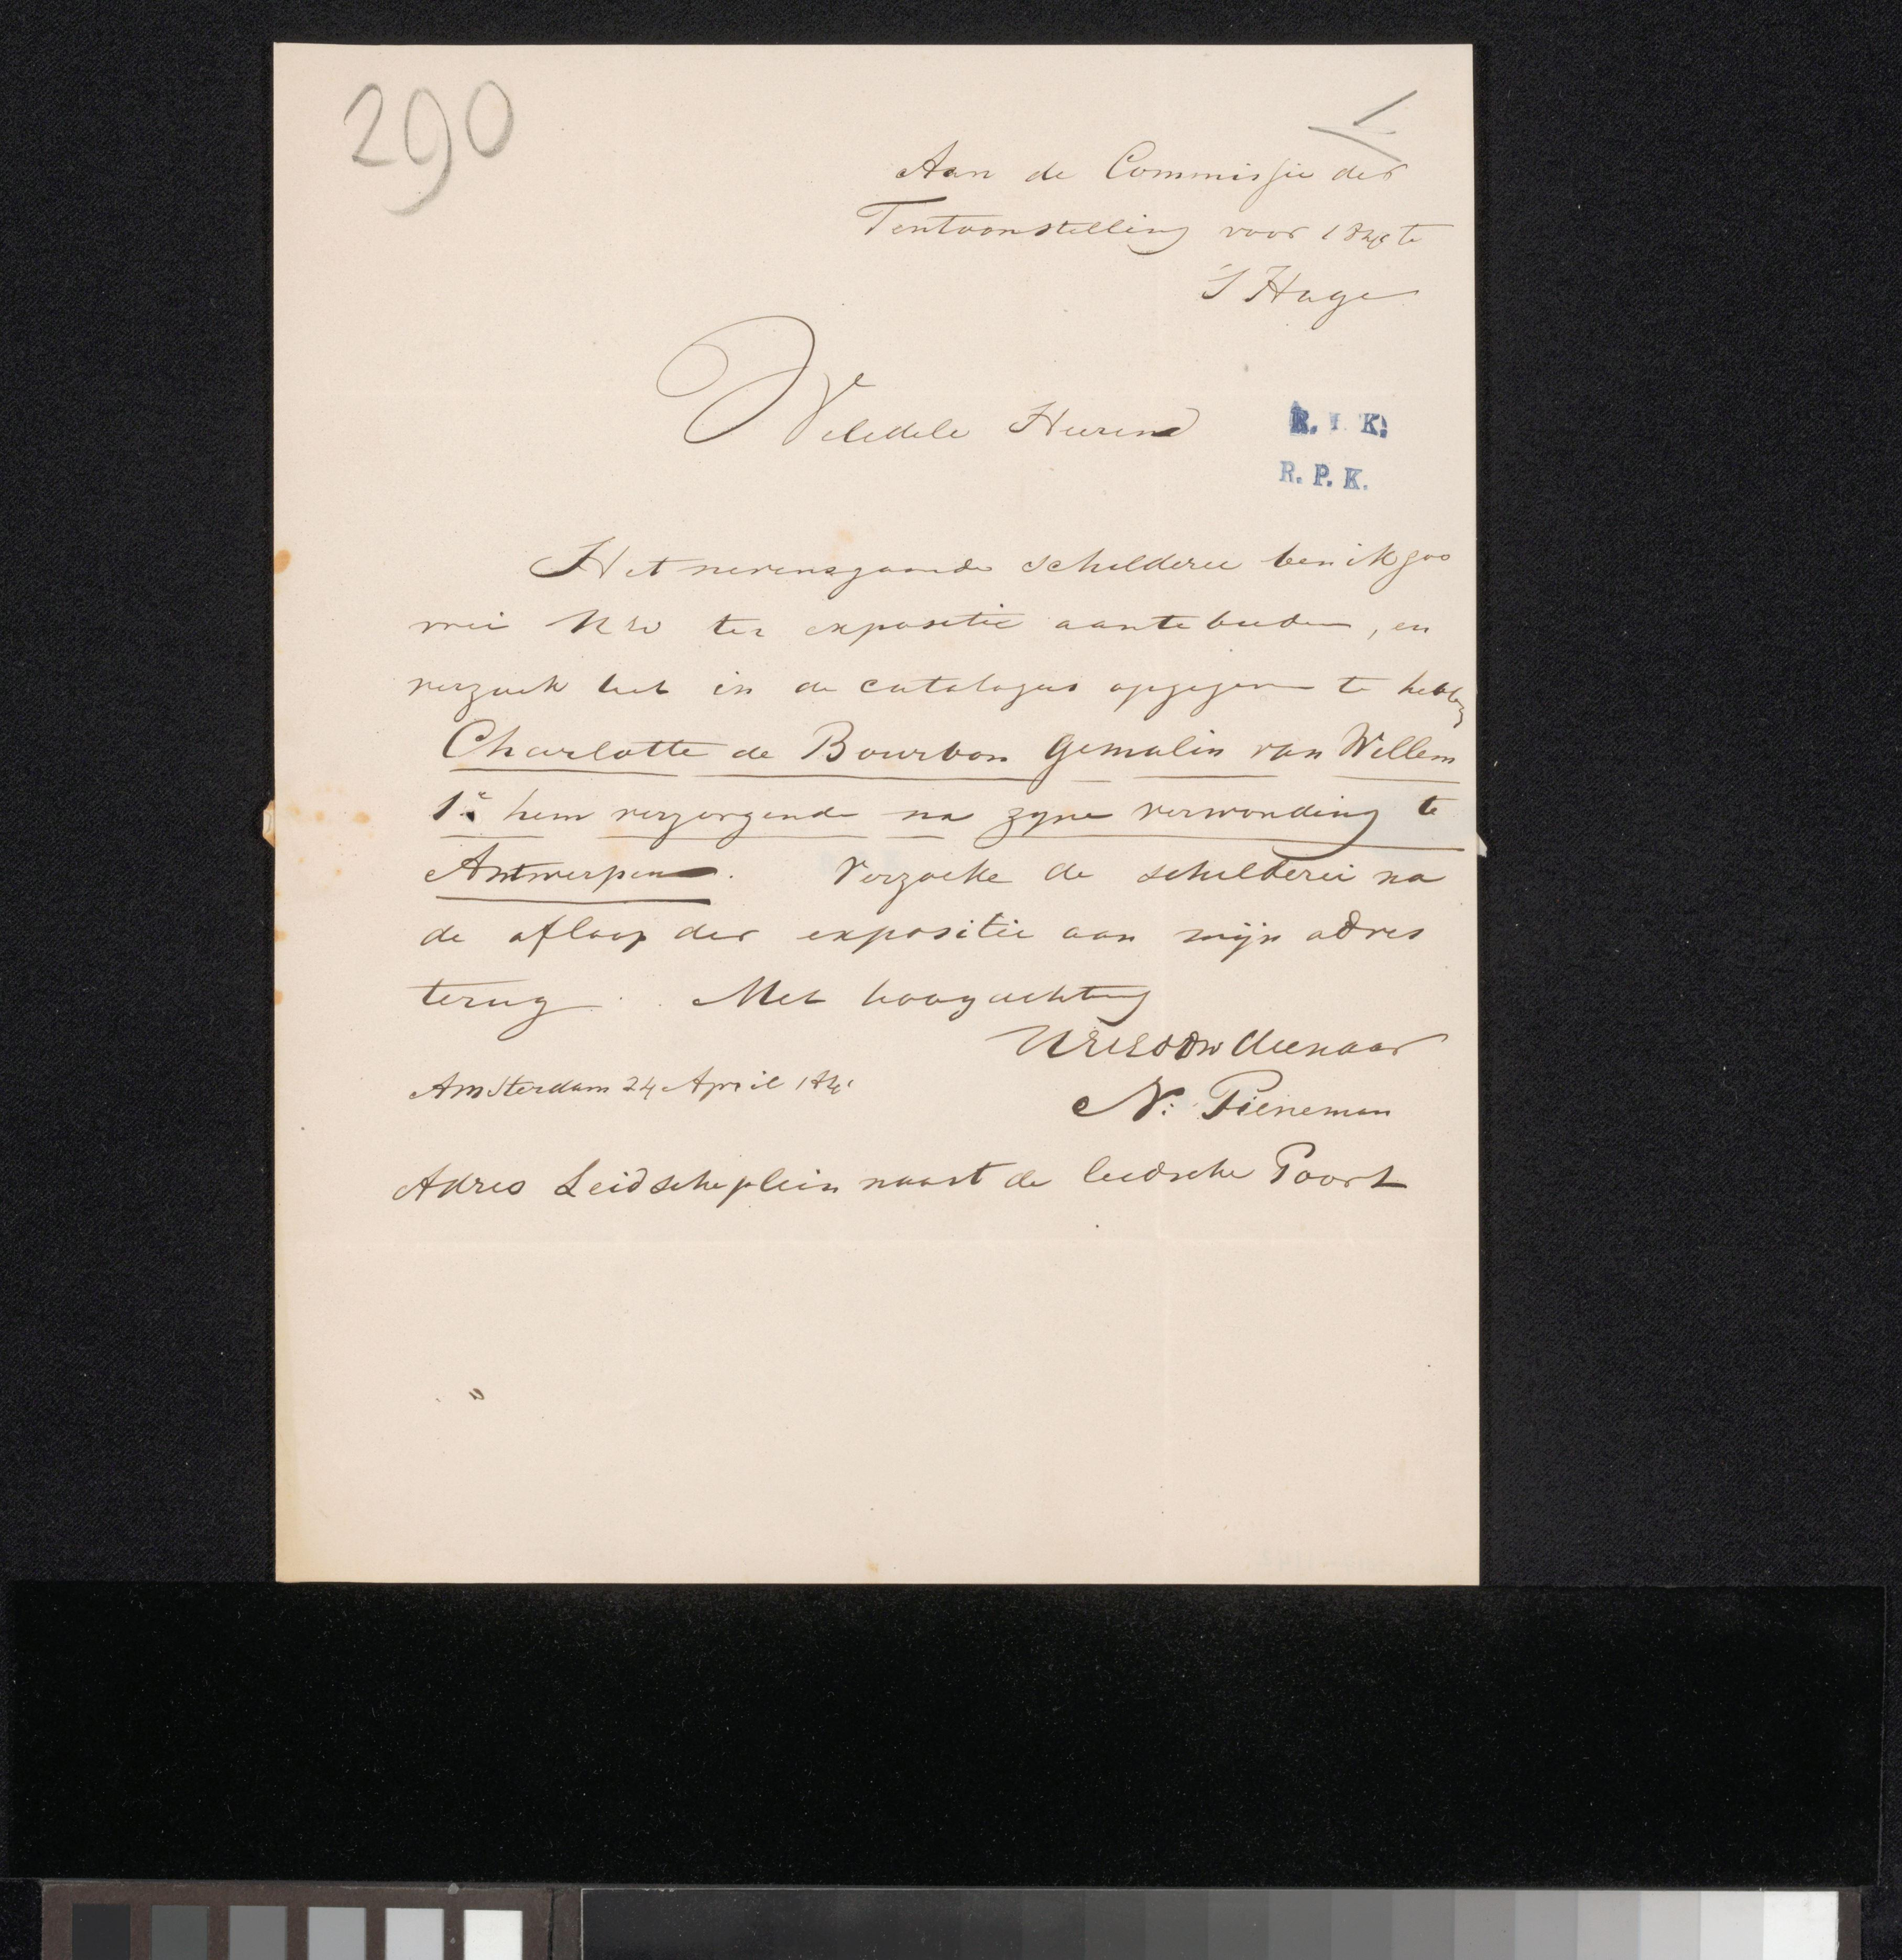 290
1
Aan de Commissie der
Tentoonstelling voor te
'S Hage
WelEdele Heeren
R. P. K.
R. P. K.
Het nevensgaande schilderei ben ik zoo
vrei UEd ter expositie aantebieden, en
verzoek het in de catalogus opgegeven te hebben
Charlotte de Bourbon gemalin van Willem
1e hem verzorgende na zyne verwonding te
Antwerpen. Verzoeke de schilderei na
de afloop der expositie aan mijn adres
terug. Met hoogachting
dienaar
Amsterdam 24 April
N: Pieneman
Adres Leidscheplein naast de leidsche Poort